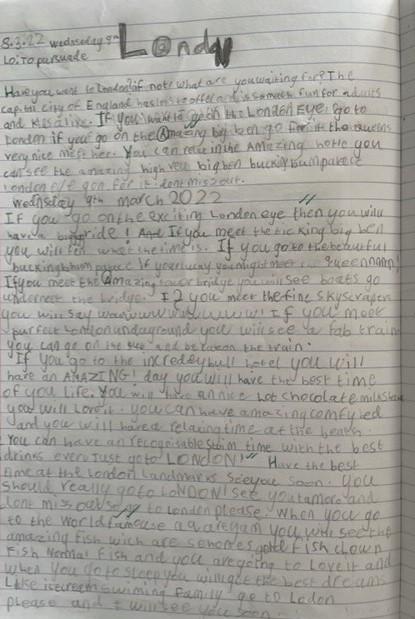 8.3.22 wednesday 9th London
Lo: To pursuade
Have you went to London? if not what are you waiting for? The
capital city of England has lots to offer and is so much fun for adults
and kids alive. If you want to go on the London Eye. go to
London if you go on the Amazing big ben go for it the queens
very nice meet her. You can relax in the Amazing hotle you
can see the amazing high veiw big ben
London eye gon for it dont miss out.
Wednesday 9th march 2022
If you go on the exciting London eye then you will
have a ride! And If you meet the tic King big ben
you will tell what the time is. If you go to the beautiful
buckingham palace if your lucky you might meet queen
If you meet the Amazing tower bridge you will see boats go
underneet the bridge. If you meet the fine skyscraper
you will say If you meet
purfect London undaground you will see a fab train
you can go on the and the train.
If you go to the hotel you will
have an AMAZING! day you will have the best time
of you life. You will have a nice hot chocolate milkshake
you will love it. you can have amazing comfy bed
and you will have a relaxing time at the
You can have an swim time with the best
drinks ever. Just go to LONDON! Have the best
time at the London Landmarks see you soon. You
should really go to LONDON! see you and
dont miss out to London please. When you go
to the world famouse you will see the
amazing fish wich are fish clown
fish normal fish and you are going to love it and
when you go to sleep you will get the best dreams
Like icecream swiming family go to Lodon
please and I will see you soon.